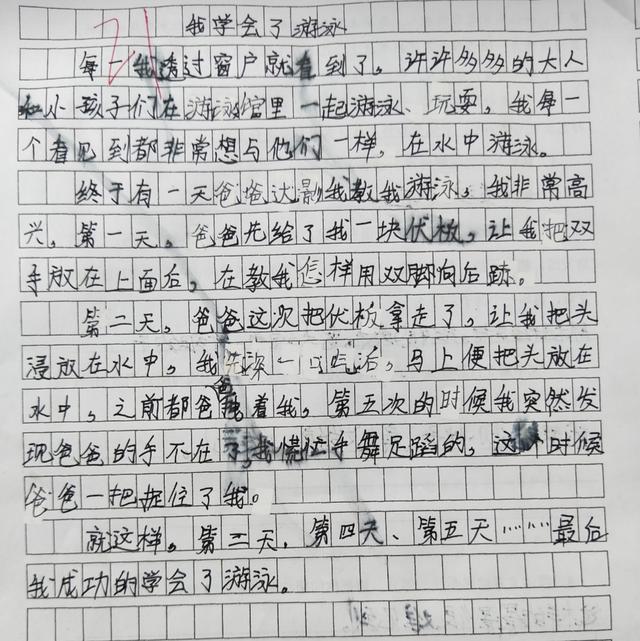 我学会了游泳
每一我透过窗户就看到了，许许多多的大人
和小孩子们在游泳馆里一起游泳、玩耍，我每一
个看见到都非常想与他们一样，在水中游泳。
终于有一天爸爸达影我教我游泳，我非常高
兴，第一天，爸爸先给了我一块伏板，让我把双
手放在上面后，在教我怎样用双脚向后跡。
第二天，爸爸这次把伏板拿走了，让我把头
浸放在水中，我先深一口气后，马上便把头放在
水中，之前都爸爸着我，第五次的时候我突然发
现爸爸的手不在了，我慌忙手舞足蹈的，这个时候
爸爸一把握住了我。
就这样，第三天，第四天、第五天……最后
我成功的学会了游泳。